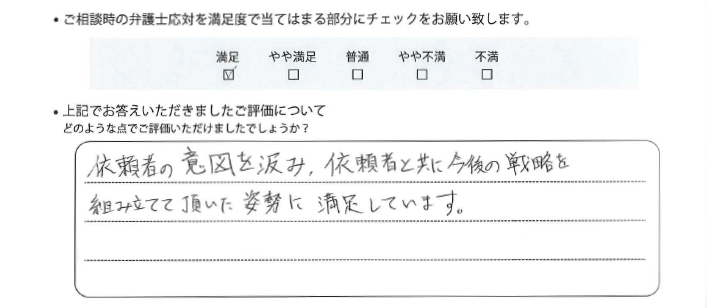 • ご相談時の弁護士応対を満足度で当てはまる部分にチェックをお願い致します。
満足 やや満足 普通 やや不満 不満
☑ ☐ ☐ ☐ ☐
• 上記でお答えいただきましたご評価について
どのような点でご評価いただけましたでしょうか？
依頼者の意図を汲み、依頼者と共に今後の戦略を
組み立てて頂いた姿勢に満足しています。